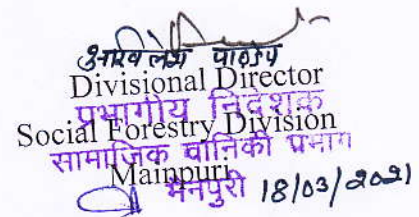 अखिलेश पाण्डेय
Divisional Director
प्रभागीय निदेशक
Social Forestry Division
सामाजिक वानिकी प्रभाग
Mainpuri
मैनपुरी 18/03/2021